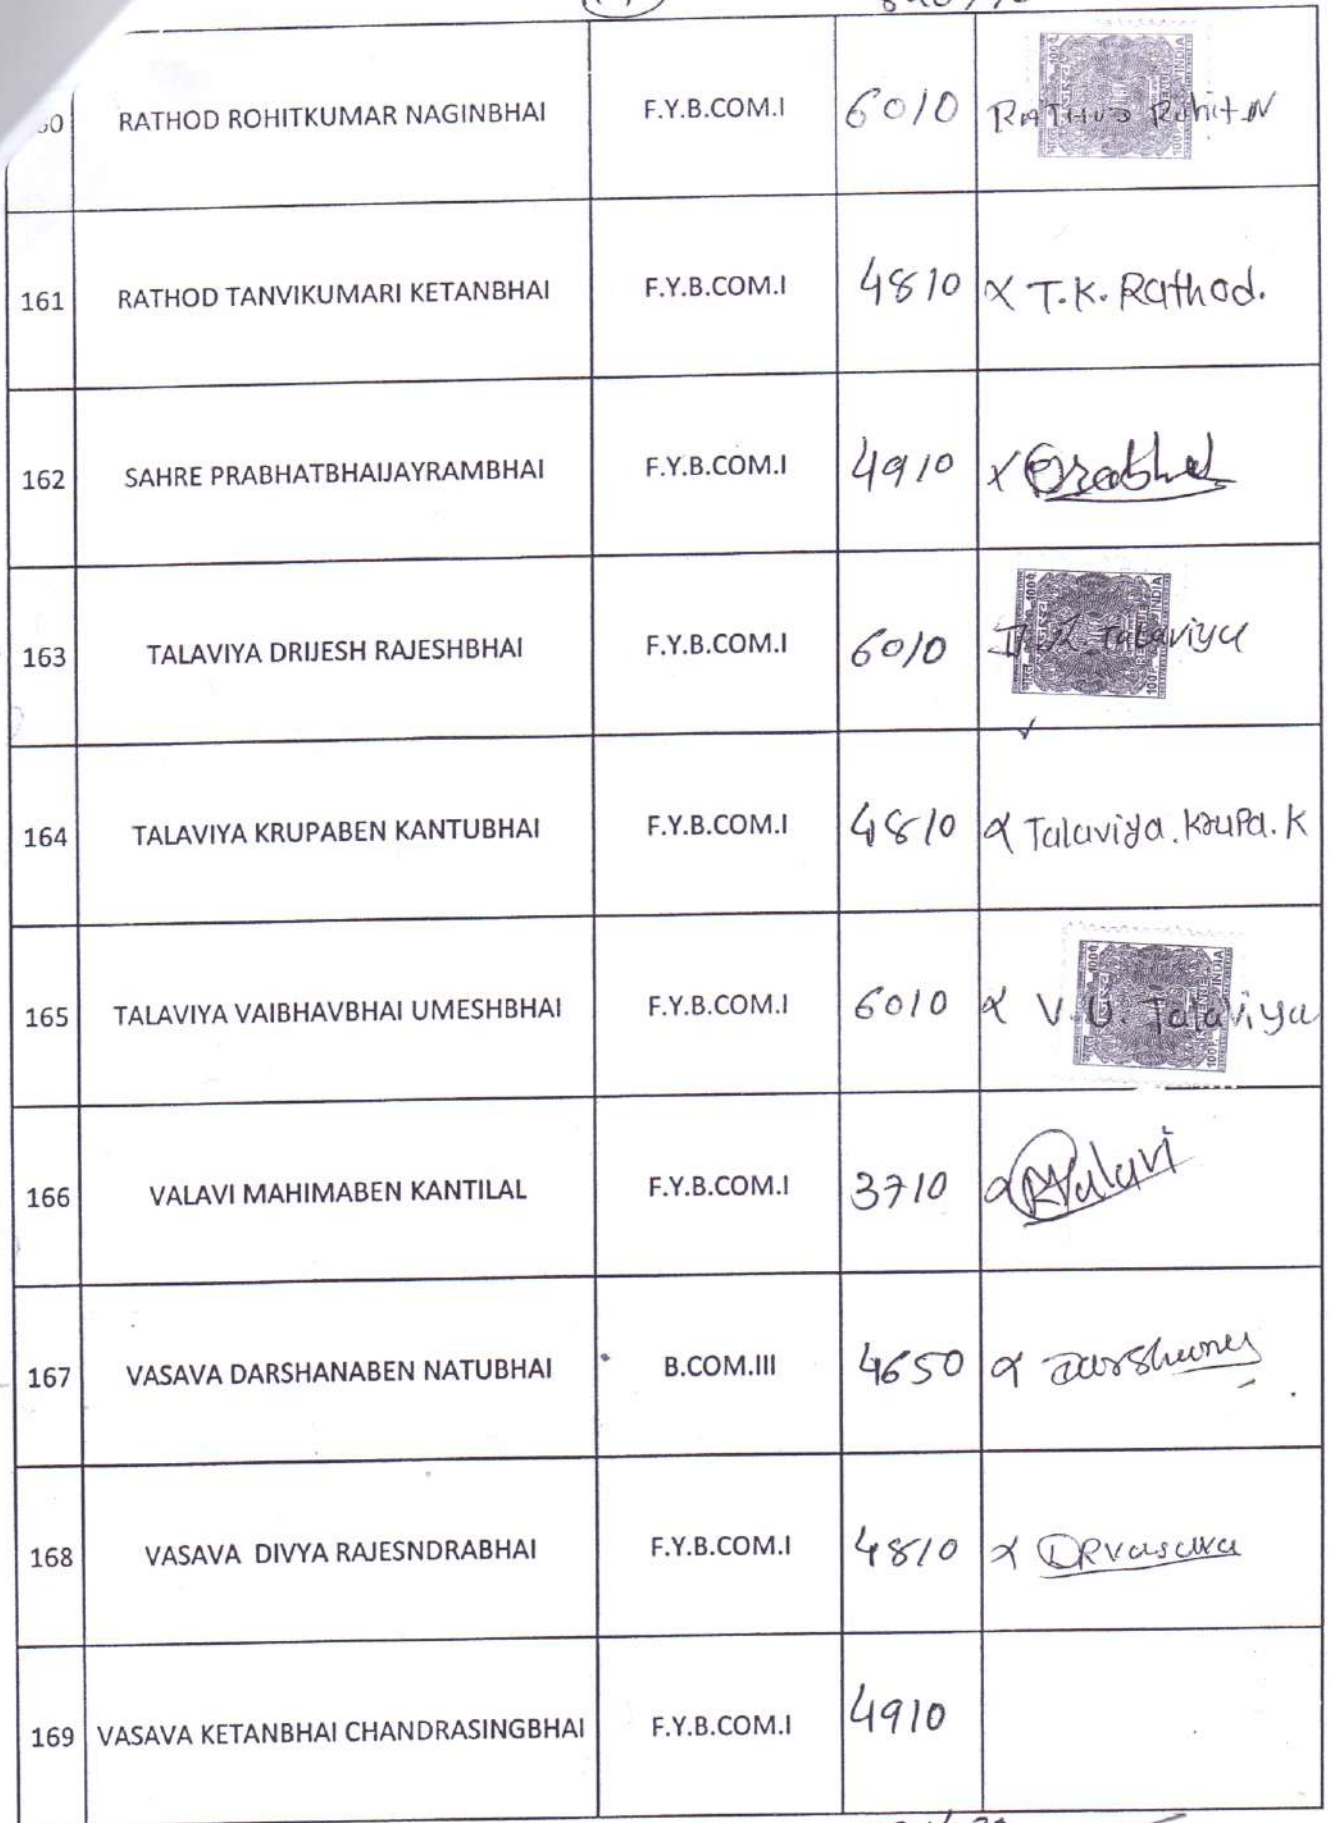 RATHOD ROHITKUMAR NAGINBHAI F.Y.B.COM.I 6010 Rohit N
161 RATHOD TANVIKUMARI KETANBHAI F.Y.B.COM.I 4810 x T.K. Rathod.
162 SAHRE PRABHATBHAIJAYRAMBHAI F.Y.B.COM.I 4910 x
163 TALAVIYA DRIJESH RAJESHBHAI F.Y.B.COM.I 6010 Talaviya
164 TALAVIYA KRUPABEN KANTUBHAI F.Y.B.COM.I 4810 x Talaviya. Krupa. K
165 TALAVIYA VAIBHAVBHAI UMESHBHAI F.Y.B.COM.I 6010 x V.U. Talaviya
166 VALAVI MAHIMABEN KANTILAL F.Y.B.COM.I 3710 x
167 VASAVA DARSHANABEN NATUBHAI B.COM.III 4650 x
168 VASAVA DIVYA RAJESNDRABHAI F.Y.B.COM.I 4810 x DRVasava
169 VASAVA KETANBHAI CHANDRASINGBHAI F.Y.B.COM.I 4910